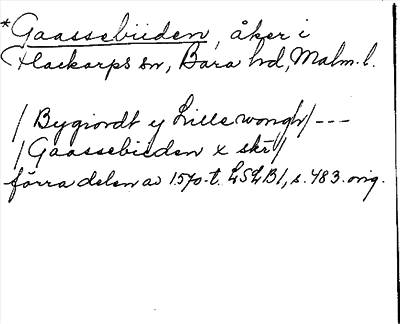 *Gaassebiiden, åker i
Flackarps sn, Bara hd, Malm. l.
/Bygiordt y Lille wongh/ ---
/Gaassebiiden x skr/
förra delen av 1570-t. LSLB1, s. 483. orig.